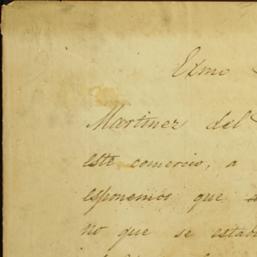 Exmo
Martinez del
este comercio, a
esponemos que
no que se estab